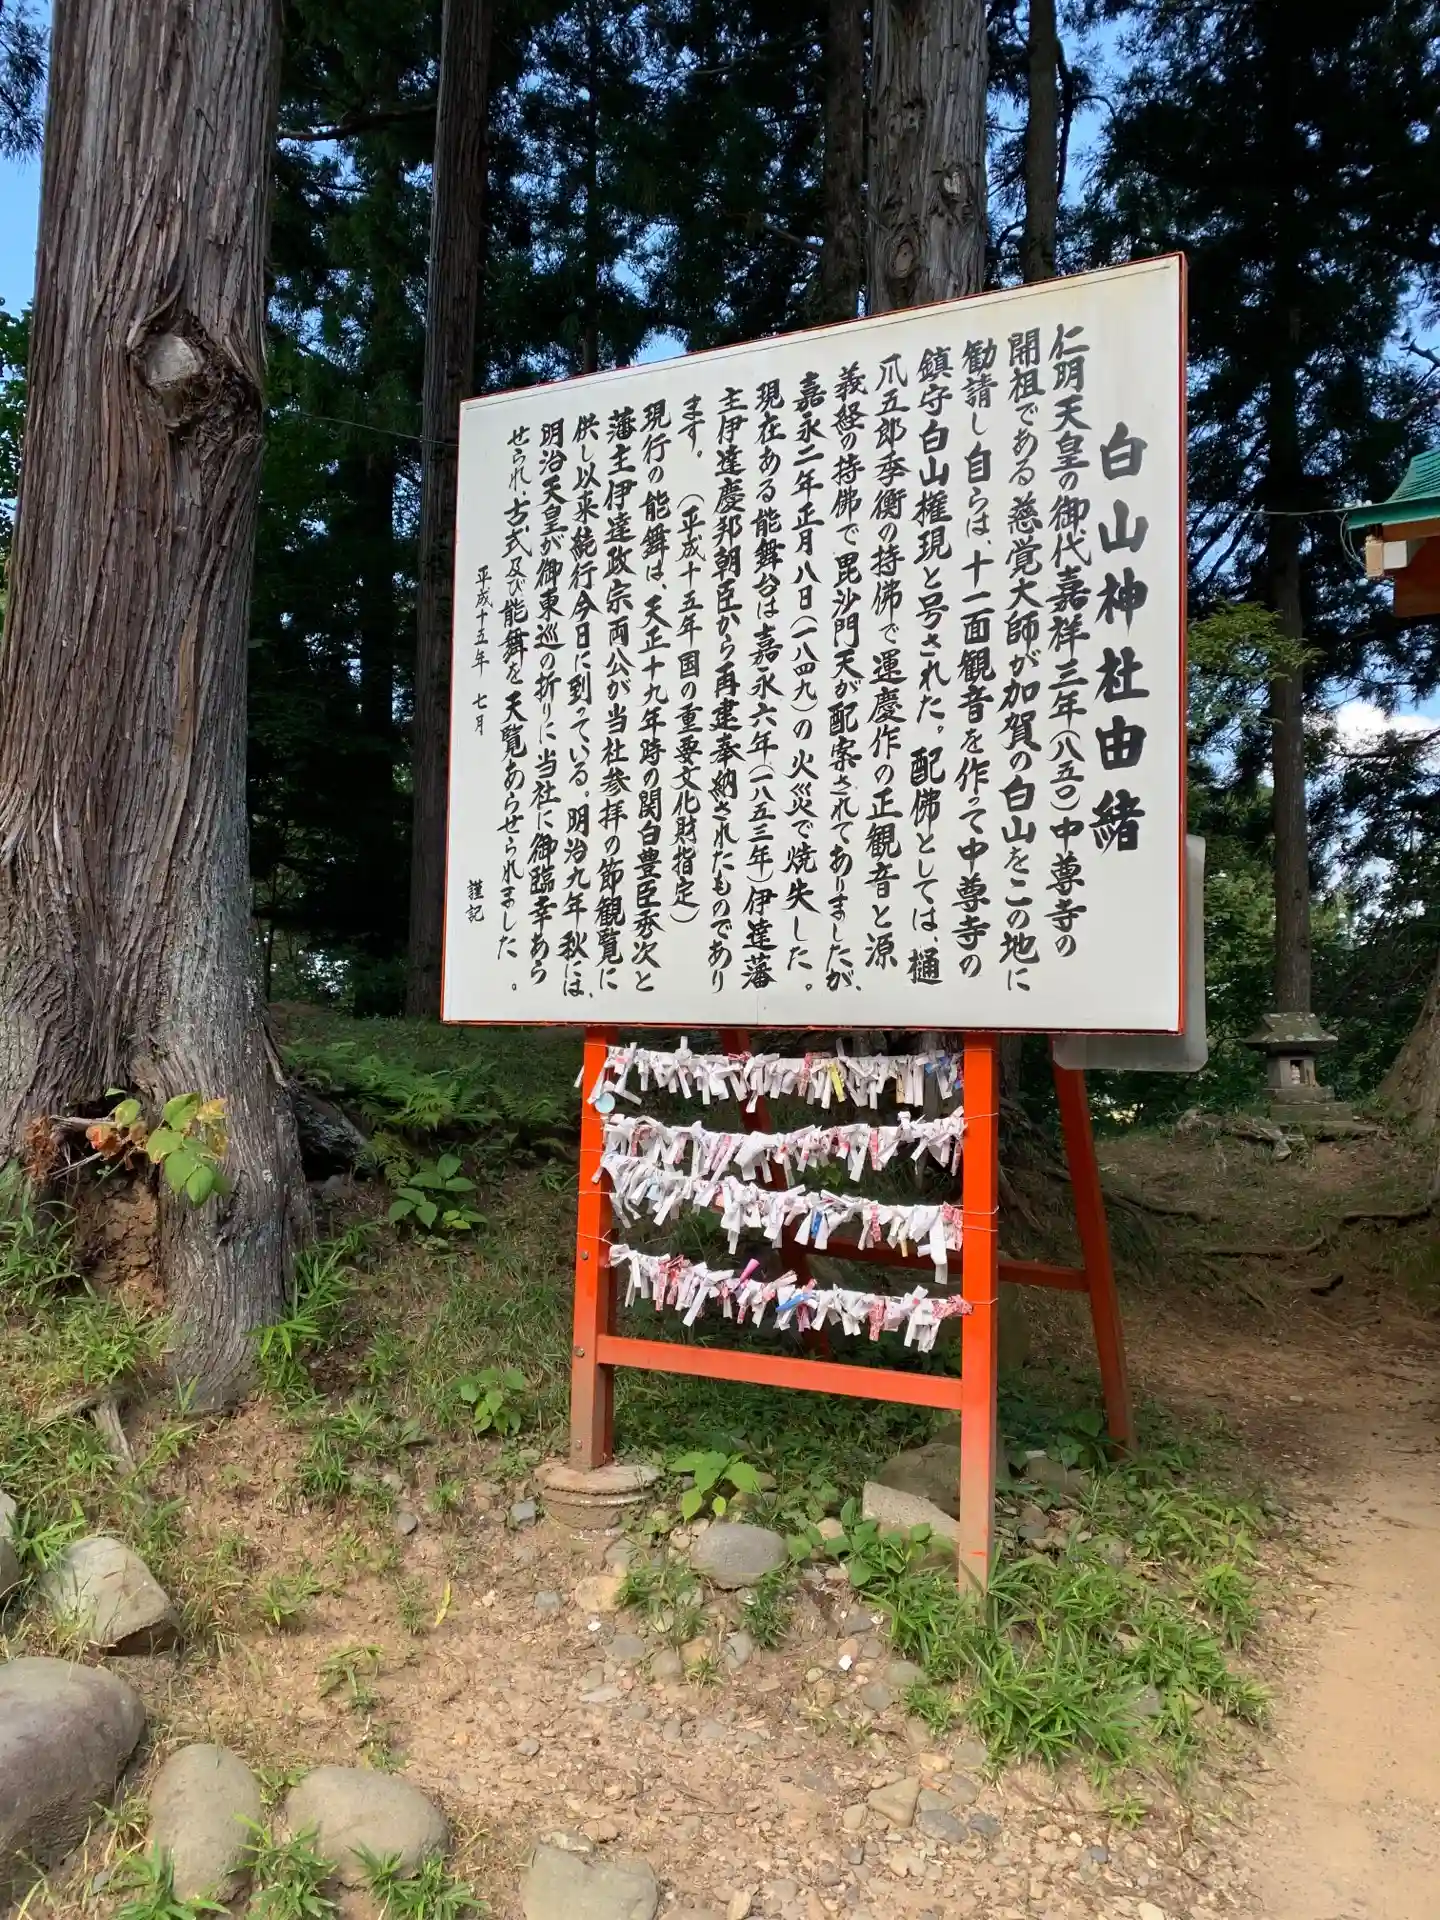 白山神社由緒
仁明天皇の御代嘉祥三年(八五〇)中尊寺の
開祖である慈覚大師が加賀の白山をこの地に
勧請し自らは、十二面観音を作って中尊寺の
鎮守白山権現と号された。配佛としては、樋
爪五郎季衡の持佛で運慶作の正観音と源
義経の持佛で毘沙門天が配案されてありましたが、
嘉永二年正月八日(一八四九)の火災で焼失した。
現在ある能舞台は嘉永六年(一八五三年)伊達藩
主伊達慶邦朝臣から再建奉納されたものであり
ます。 (平成十五年国の重要文化財指定)
現行の能舞は、天正十九年時の関白豊臣秀次と
藩主伊達政宗両公が当社参拝の節観覧に
供し以来続行今日に到っている。明治九年秋には、
明治天皇が御東巡の折りに当社に御臨幸あら
せられ、古式及び能舞を天覧あらせられました。
平成十五年 七月
謹記